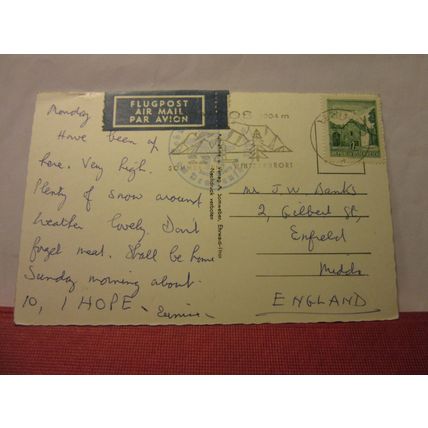 Monday
FLUGPOST
AIR MAIL
PAR AVION
Have been up
here. Very high.
Plenty of snow around
weather lovely. Don't
forget meat. Shall be home
Sunday morning about
10, I HOPE.
Mr J. W. Banks
2, Gilbert St,
Enfield
Middx
ENGLAND